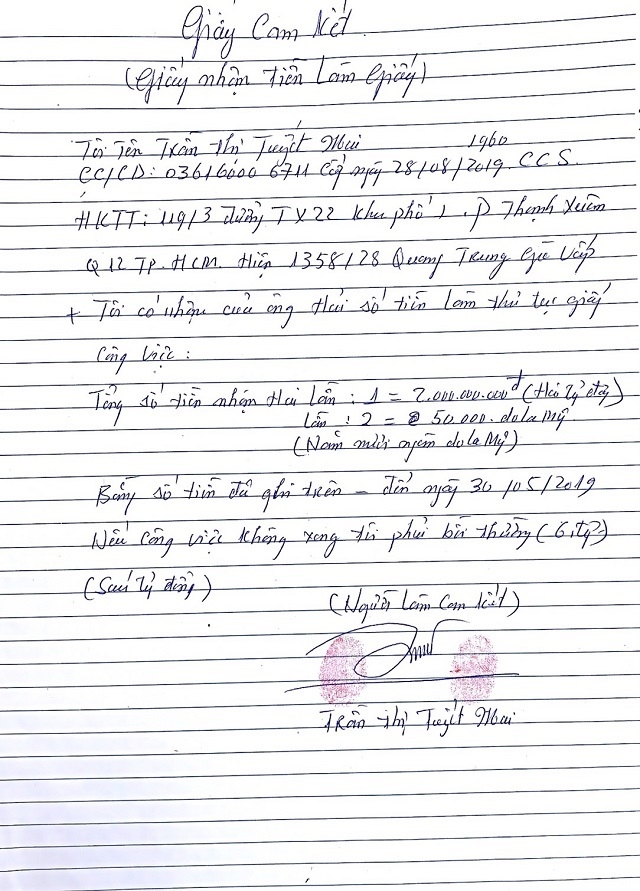 Giấy Cam Kết
(Giấy nhận tiền làm Giấy)
Tôi Tên Trần Thị Tuyết Mai 1960
CC/CD: 03616000 6711 Cấp ngày 28/08/2019. CCS.
HKTT: 119/3 đường TX22 khu phố 1. P Thạnh Xuân
Q12 TP. HCM. Hiện 1358/28 Quang Trung Gò Vấp
+ Tôi có nhận của ông Hải số tiền làm thủ tục giấy
Công việc:
Tổng số tiền nhận Hai lần: 1 = 2.000.000.000đ (Hai tỷ đồng)
lần: 2 = 50.000. dola Mỹ
(Năm mươi ngàn dola Mỹ)
Bằng số tiền đã ghi trên – đến ngày 30/05/2019
Nếu công việc không xong tôi phải bồi thường (6. tỷ)
(Sáu tỷ đồng)
(Người làm Cam Kết)
Trần Thị Tuyết Mai